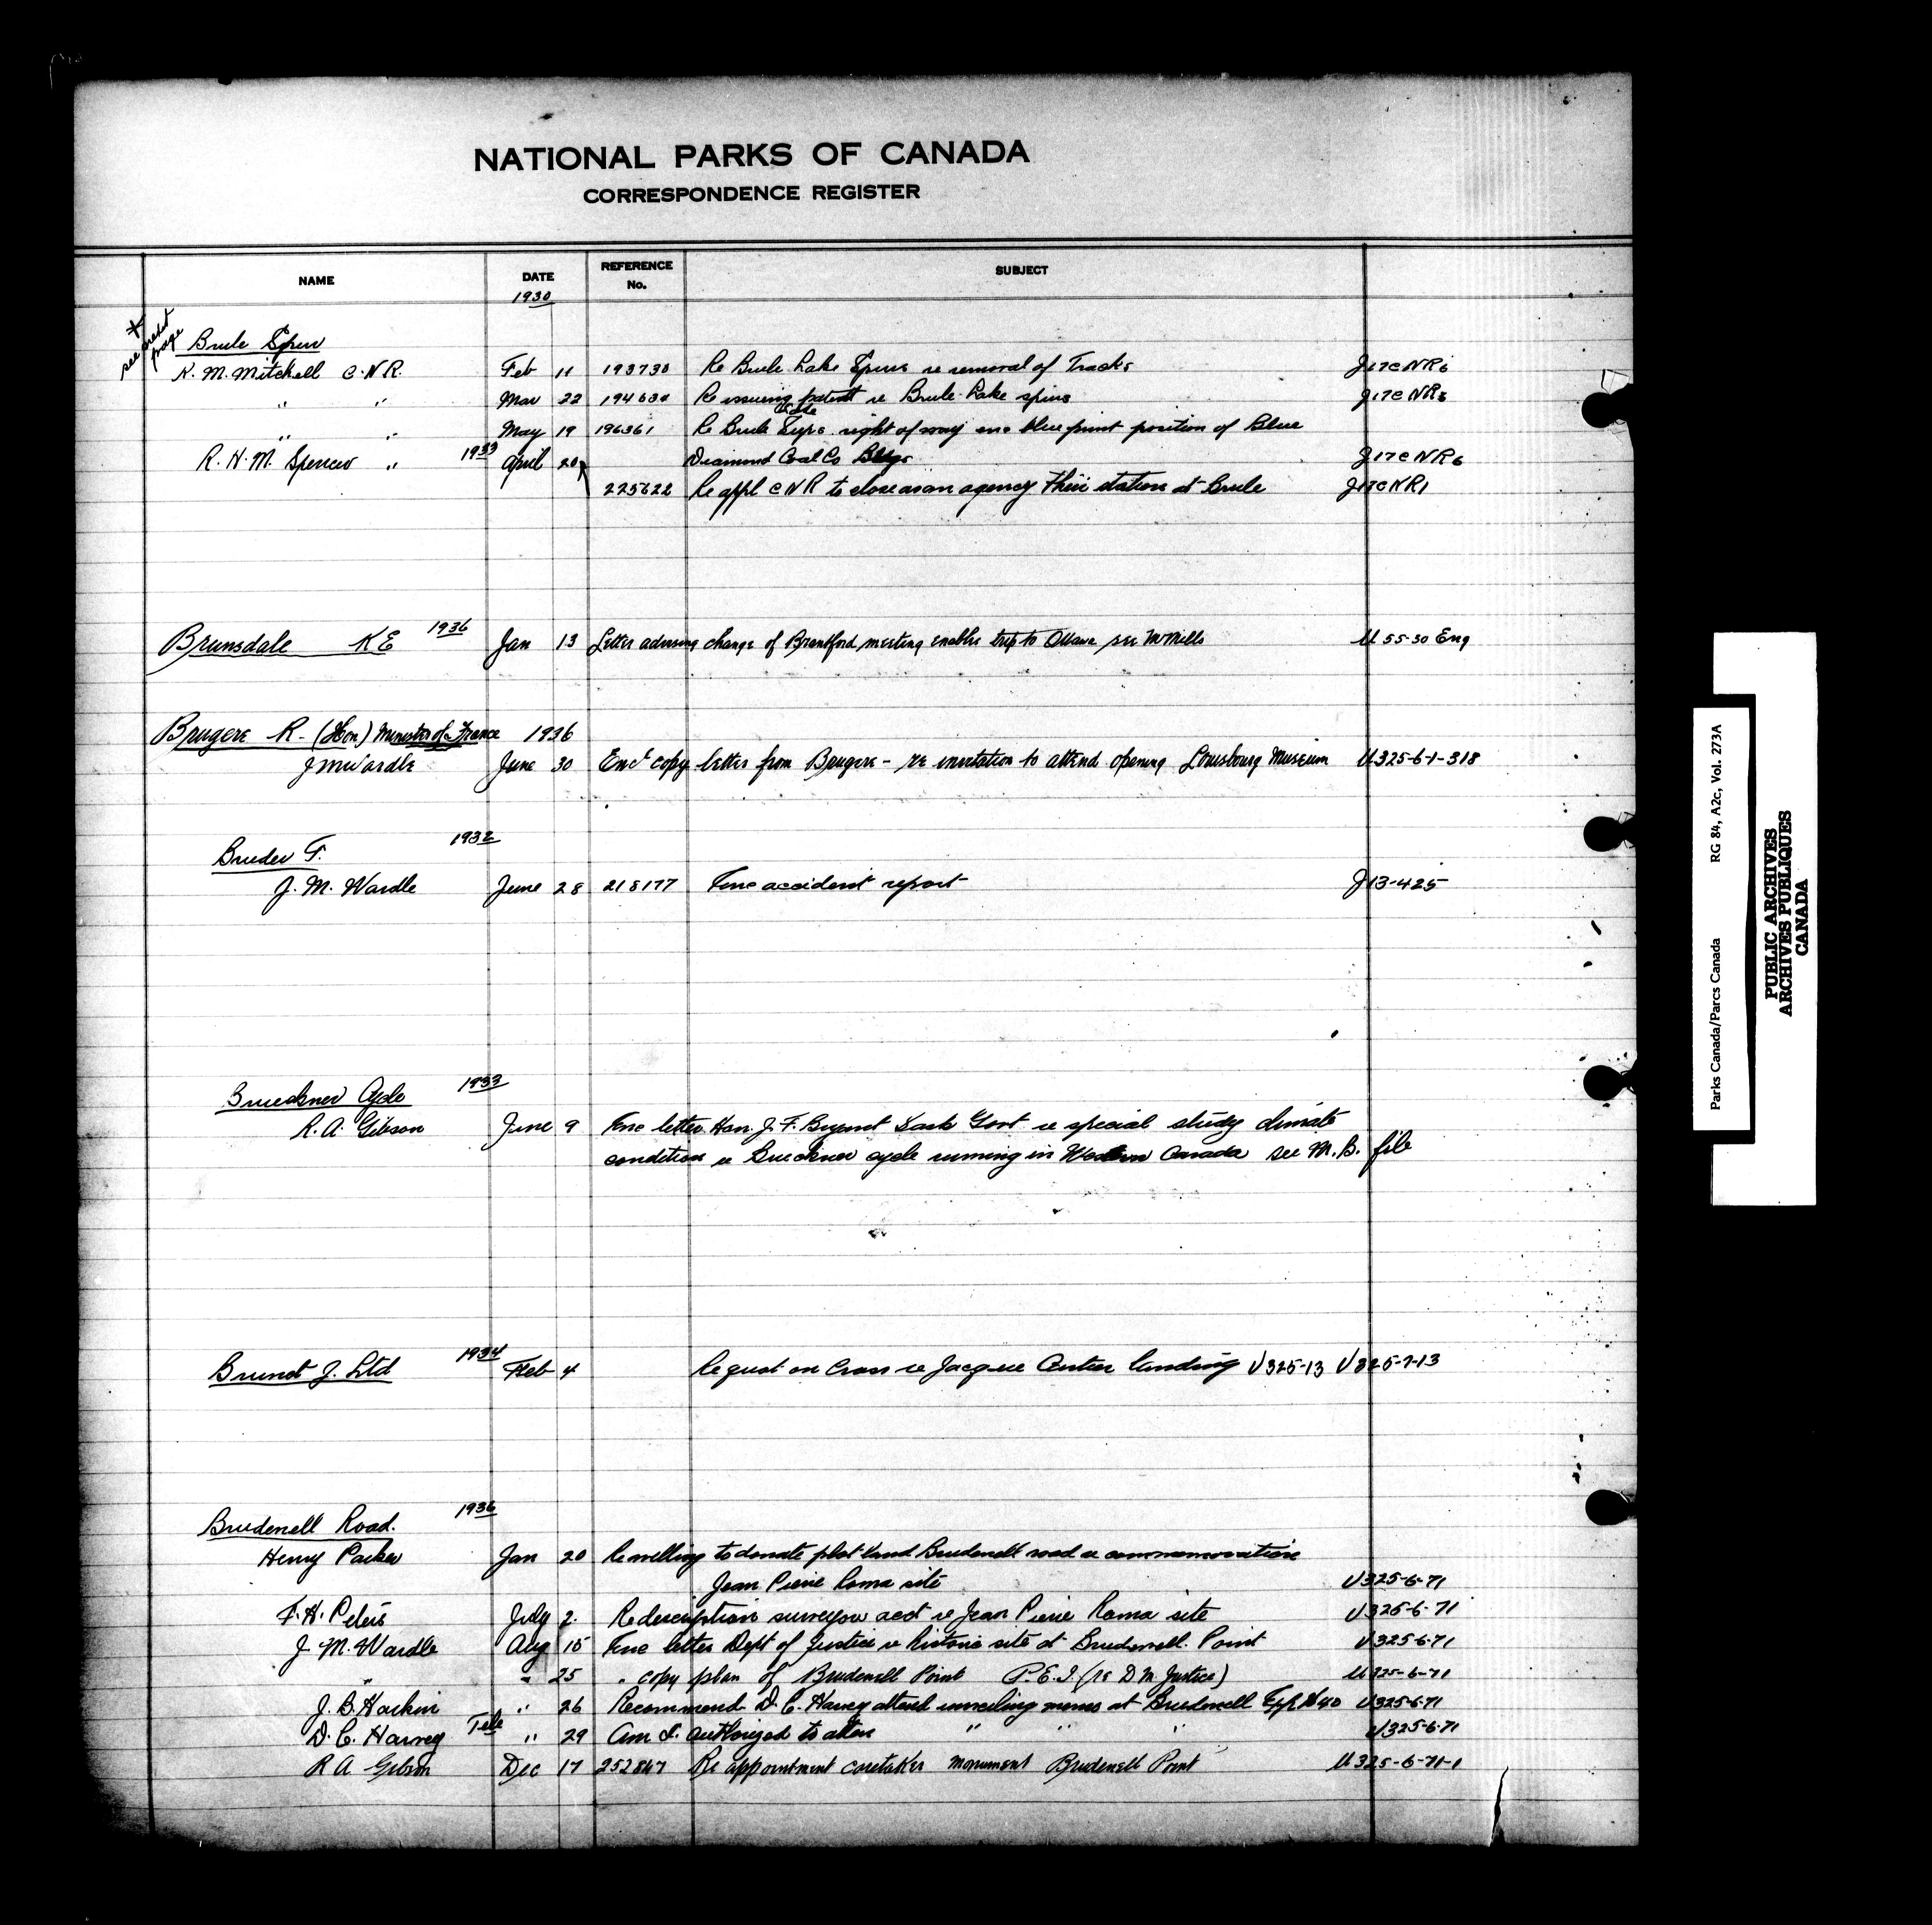 NATIONAL PARKS OF CANADA
CORRESPONDENCE REGISTER
NAME DATE REFERENCE No. SUBJECT
1930
* see next page
Brule Spur
K. M. Mitchell C.N.R. Feb 11 193730 Re Brule Lake Spur re removal of Tracks J17CNR6
" " Mar 22 194630 Re issuing patent re Brule Lake spur J17CNR3
" " May 19 196361 Re Brule right of way enc blue print position of Blue
Diamond Coal Co Bldgs J17CNR6
R. H. M. Spencer " 1933 April 20
225622 Re appl CNR to close as an agency their station at Brule J17CNR1
Brunsdale KE 1936 Jan 13 Letter advising change of Brantford meeting enables trip to Ottawa see Mr Mills U 55-30 Eng
Brugere R. (Hon) Minister of France 1936
J M Wardle June 30 Encl copy letter from Brugere - re invitation to attend opening Louisbourg Museum U325-6-1-318
Bruder F. 1932
J. M. Wardle June 28 218177 Enc accident report J13-425
Brueckner Cycle 1933
R. A. Gibson June 9 Enc letter Hon. J. F. Bryant Sask Govt re special study climate
condition re Brueckner cycle running in Western Canada see M.B. file
1934
J. Ltd Feb 4 Request on Cross re Jacques Cartier landing U325-13 U325-7-13
Brudenell Road. 1936
Henry Parker Jan 20 Re willing to donate plot land Brudenell road re commemoration
Jean Pierre Roma site U325-6-71
F. H. Peters July 2. Re description surveyor acct re Jean Pierre Roma site U325-6-71
J. M. Wardle Aug 15 Enc letter Dept of Justice re historic site at Brudenell Point U325-6-71
" " 25 " copy plan of Brudenell Point P.E.I. (re D M Justice) U325-6-71
J. B. Harkin " 26 Recommend D. C. Harvey attend unveiling at Brudenell U325-6-71
D. C. Harvey Tele " 29 authorized to atten " " " U325-6-71
R A Gibson Dec 17 252847 Re appointment caretaker monument Brudenell Point U325-6-71-1
Parks Canada/Parcs Canada RG 84, A2c, Vol. 273A
PUBLIC ARCHIVES
ARCHIVES PUBLIQUES
CANADA